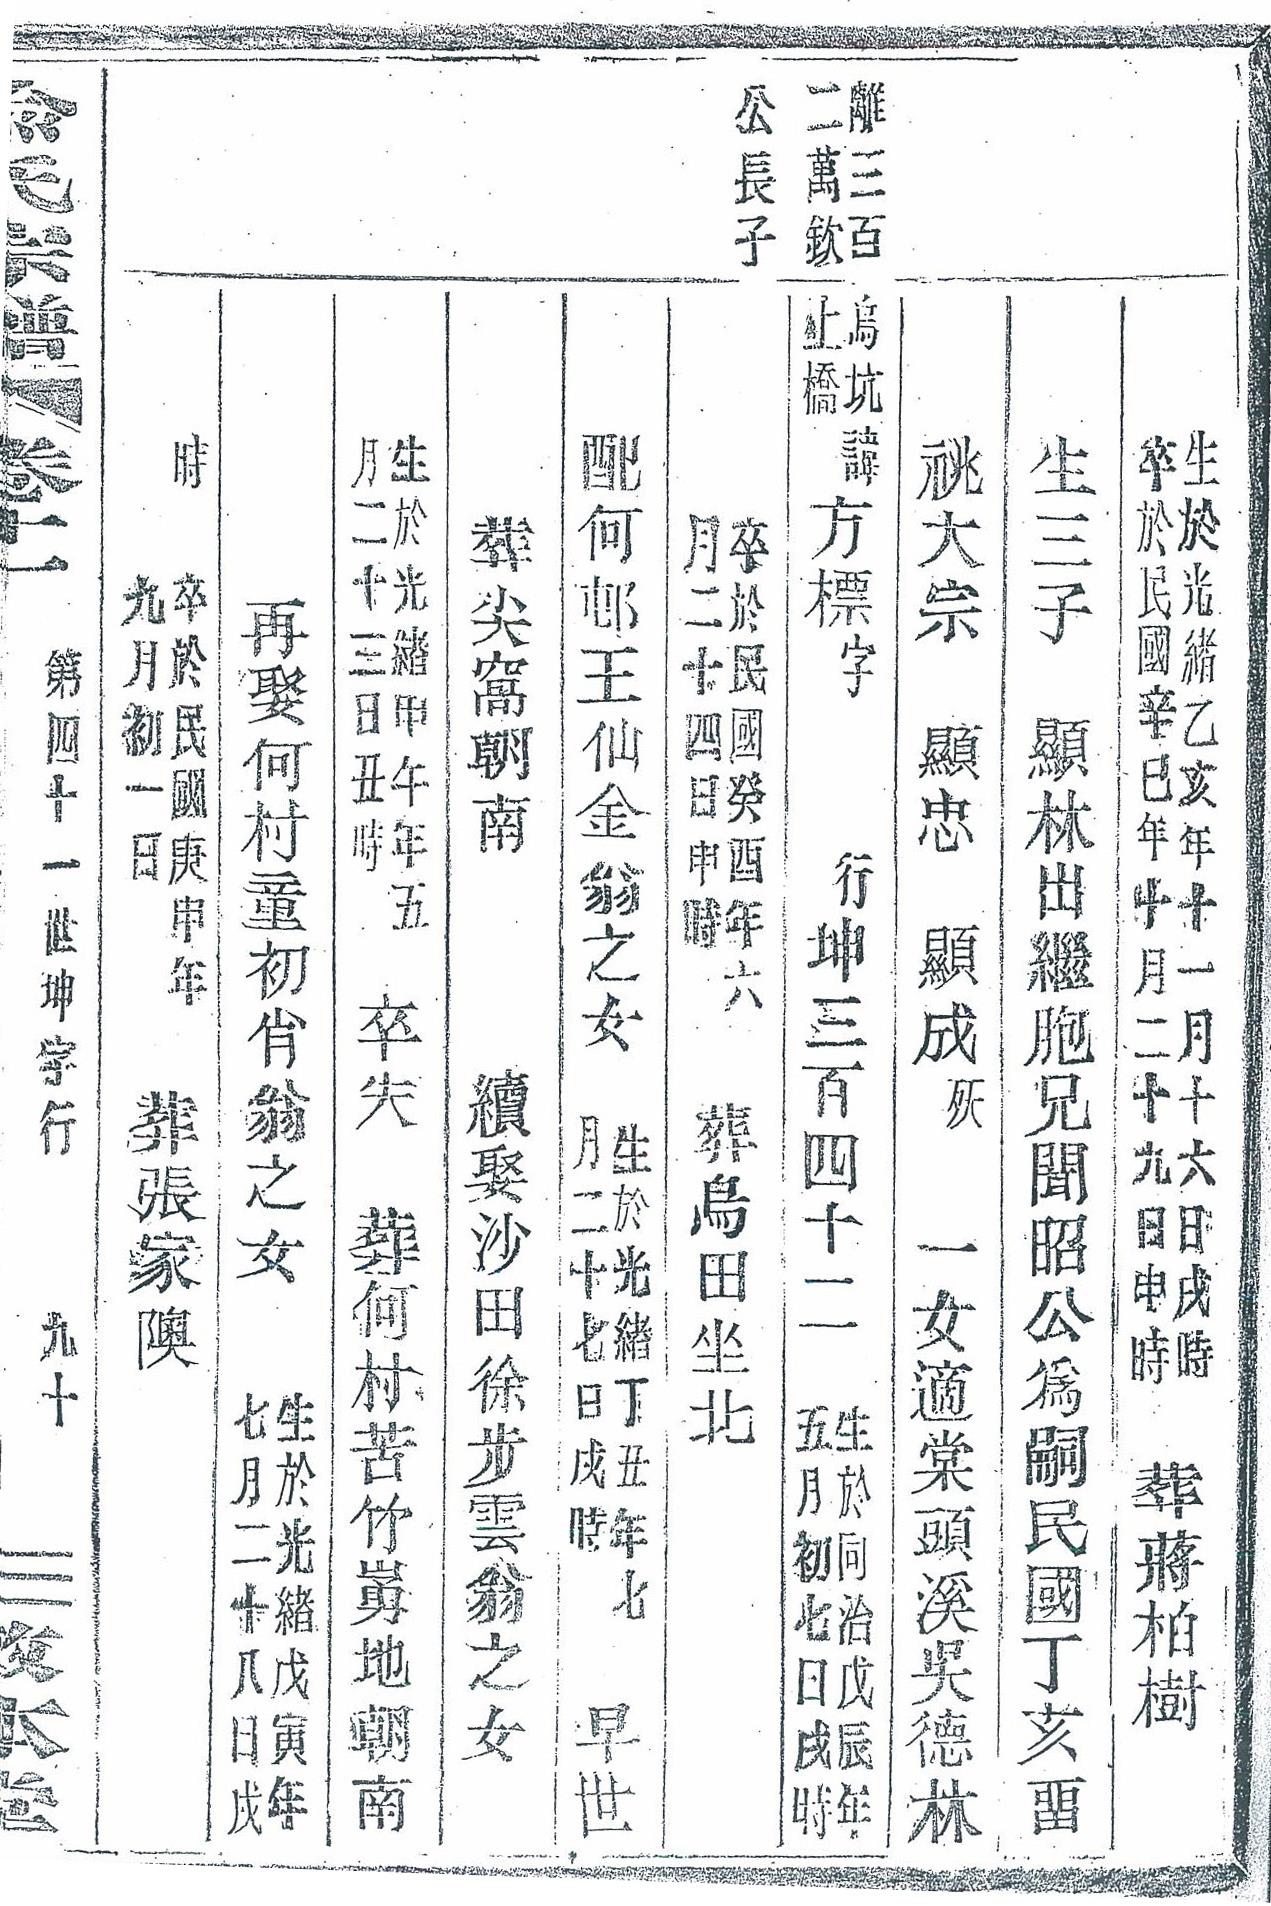 生於光緒乙亥年十一月十六日戌時
卒於民國辛巳年十月二十九日申時
葬蔣柏樹
生三子 顯林出繼胞兄聞昭公為嗣民國丁亥畱
祧大宗 顯忠 顯成殀 一女適棠頭溪吳德林
離三百
二萬欽
公長子
烏坑
止橋
諱方標字 行坤三百四十二
生於同治戊辰年
五月初七日戌時
卒於民國癸酉年六
月二十四日申時
葬鳥田坐北
配何邨王仙金翁之女
生於光緒丁丑年七
月二十七日戌時
早世
葬尖窩朝南 續娶沙田徐步雲翁之女
生於光緒甲午年五
月二十三日丑時
卒失 葬何村苦竹塢地朝南
再娶何村童初俏翁之女
生於光緒戊寅年
七月二十八日戌
時
卒於民國庚申年
九月初一日
葬張家隩
氏宗譜 卷十一 第四十一世坤字行 九十 三本堂